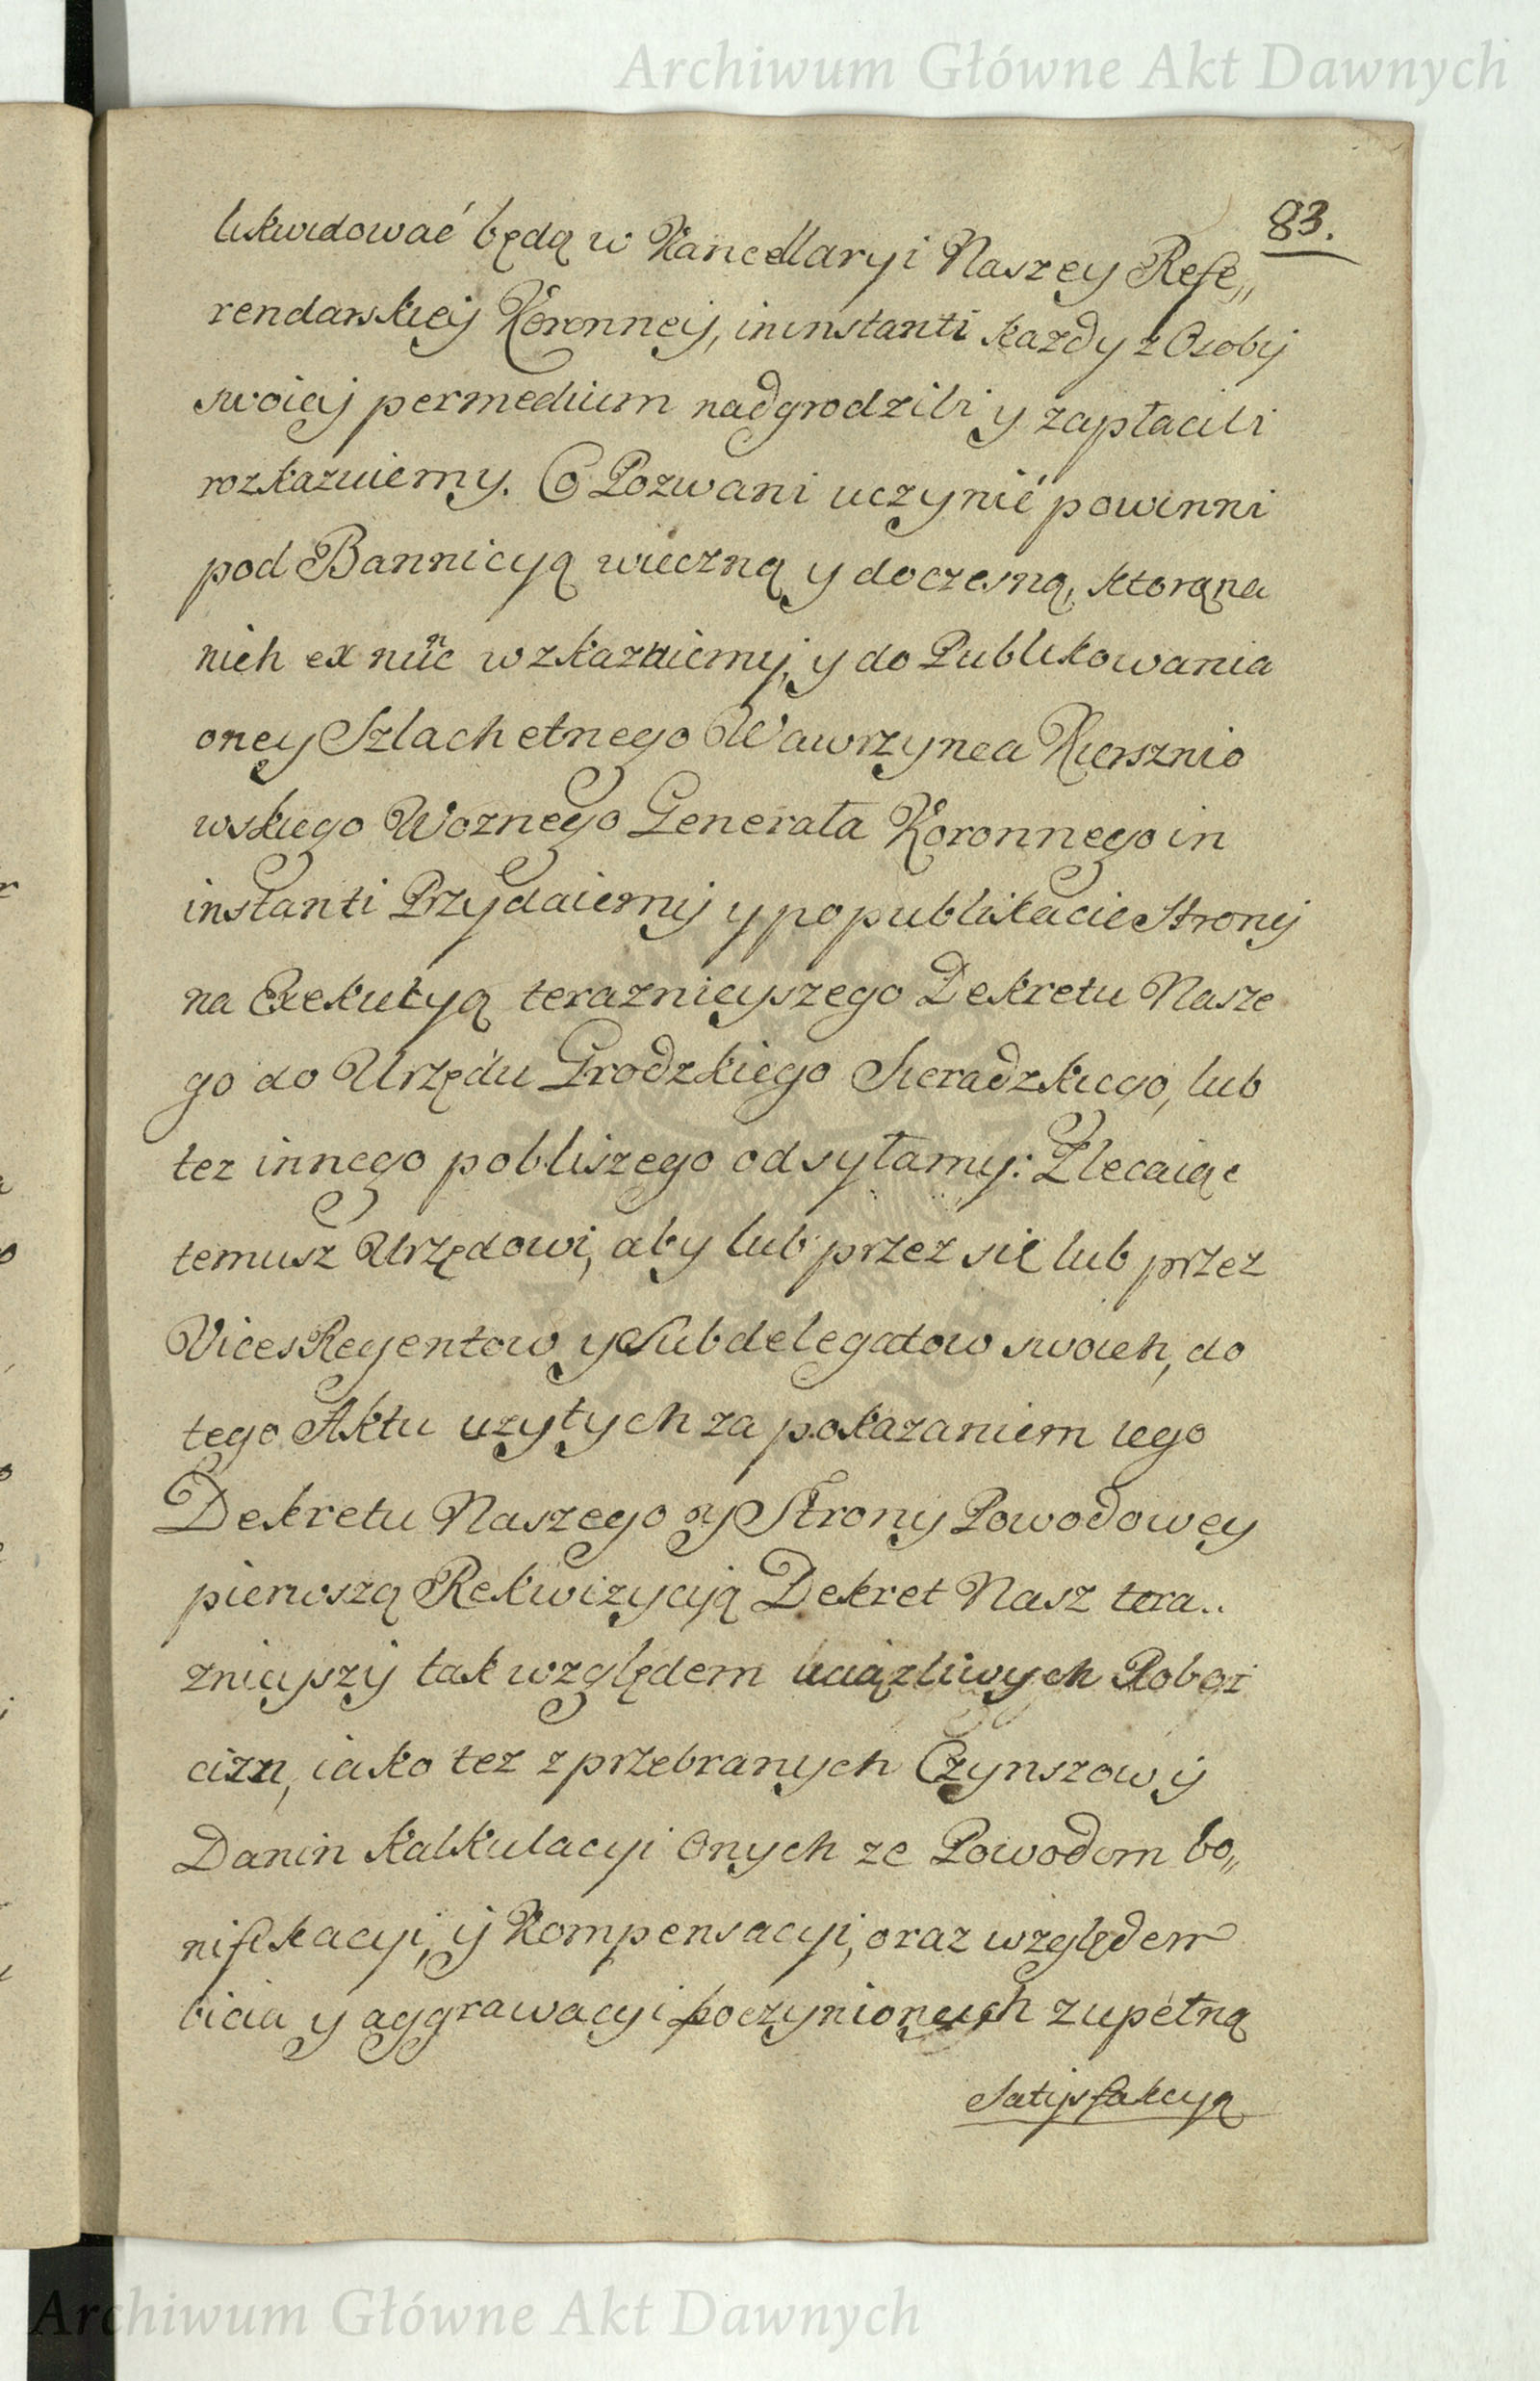 Archiwum Główne Akt Dawnych
83.
likwidować będą w Kancellaryi Naszey Refe„
rendarskiey Koronney, in instanti każdy z Osoby
swoiey per medium nadgrodzili y zapłacili
rozkazuiemy. Co Pozwani uczynić powinni
pod Bannicyą wieczną y doczesną, ktorą na
nich ex nunc wzkazuiemy, y do Publikowania
oney Szlachetnego Wawrzynca Kiersznio
wskiego Woznego Generała Koronnego in
instanti Przydaiemy y po publikacie Strony
na Exekucyą teraznieyszego Dekretu Nasze
go do Urzędu Grodzkiego Sieradzkiego, lub
tez innego pobliszego odsyłamy: Zlecaiąc
temusz Urzędowi, aby lub przez się lub przez
Vices Regentow y Subdelegatow swoich, do
tego Aktu uzytych za pokazaniem iego
Dekretu Naszego y Strony Powodowey
pierwszą Rekwizycyą Dekret Nasz tera..
znieyszy tak względem uciązliwych Robot
cizn, iako tez z przebranych Czynszow y
Danin kalkulacyi Onych ze Powodom bo„
nifikacyi, y Kompensacyi, oraz względem
bicia y aggrawacyi poczynionych zupełną
Satysfakcyą
Archiwum Główne Akt Dawnych